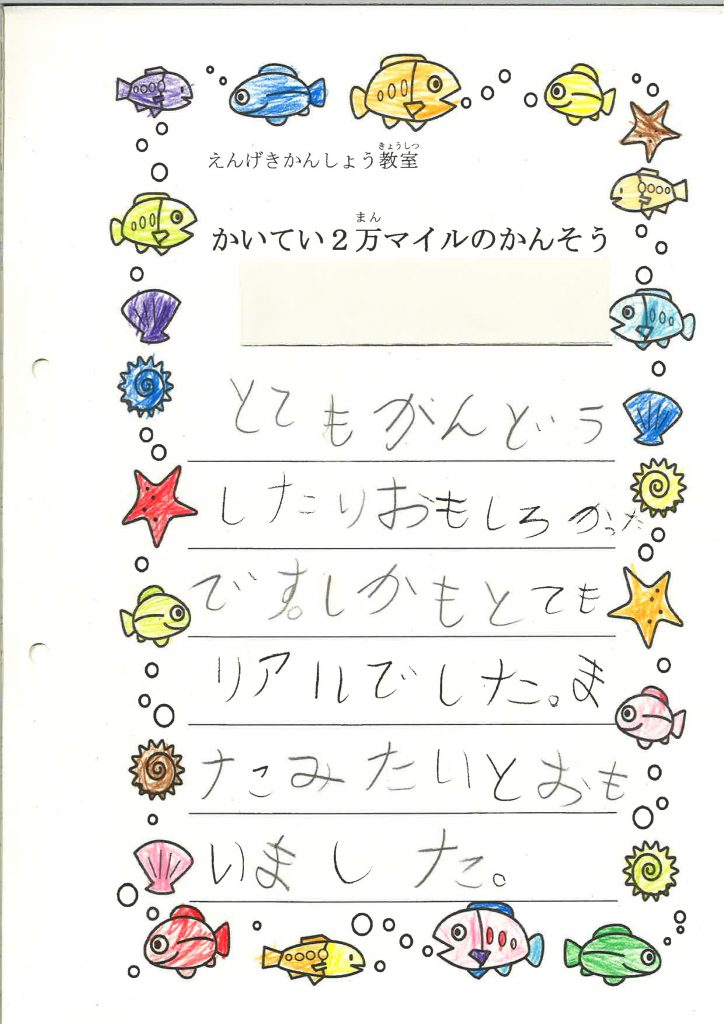 えんげきかんしょう教室
きょうしつ
かいてい２万マイルのかんそう
まん
とてもかんどう
したりおもしろかった
です。しかもとても
リアルでした。ま
たみたいとおも
いました。